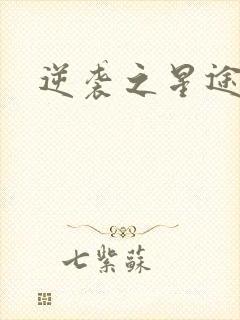 逆袭之星途
七紫蘇